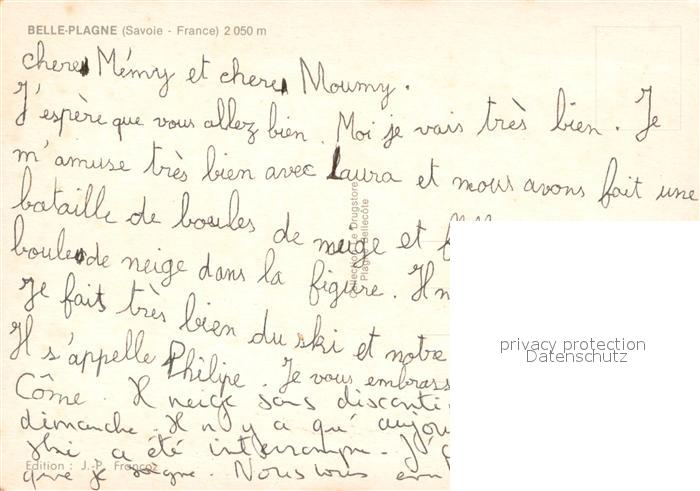 BELLE-PLAGNE (Savoie - France) 2 050 m
chere Mémy et chere Moumy.
J'espère que vous allez bien. Moi je vais très bien. Je
m'amuse très bien avec Laura et nous avons fait une
bataille de boules de neige et
boule de neige dans la figure. Il n
Je fait très bien du ski et notre
Il s'appelle Philipe. Je vous embrass
Côme. Il neige sans disconti
dimanche. Il n'y a qu' aujou
ski a été interrompu. J'
que je soigne. Nous vous em
Edition : J.-P. Francoz
Collection Le Drugstore
Plagne Bellecôte
privacy protection
Datenschutz